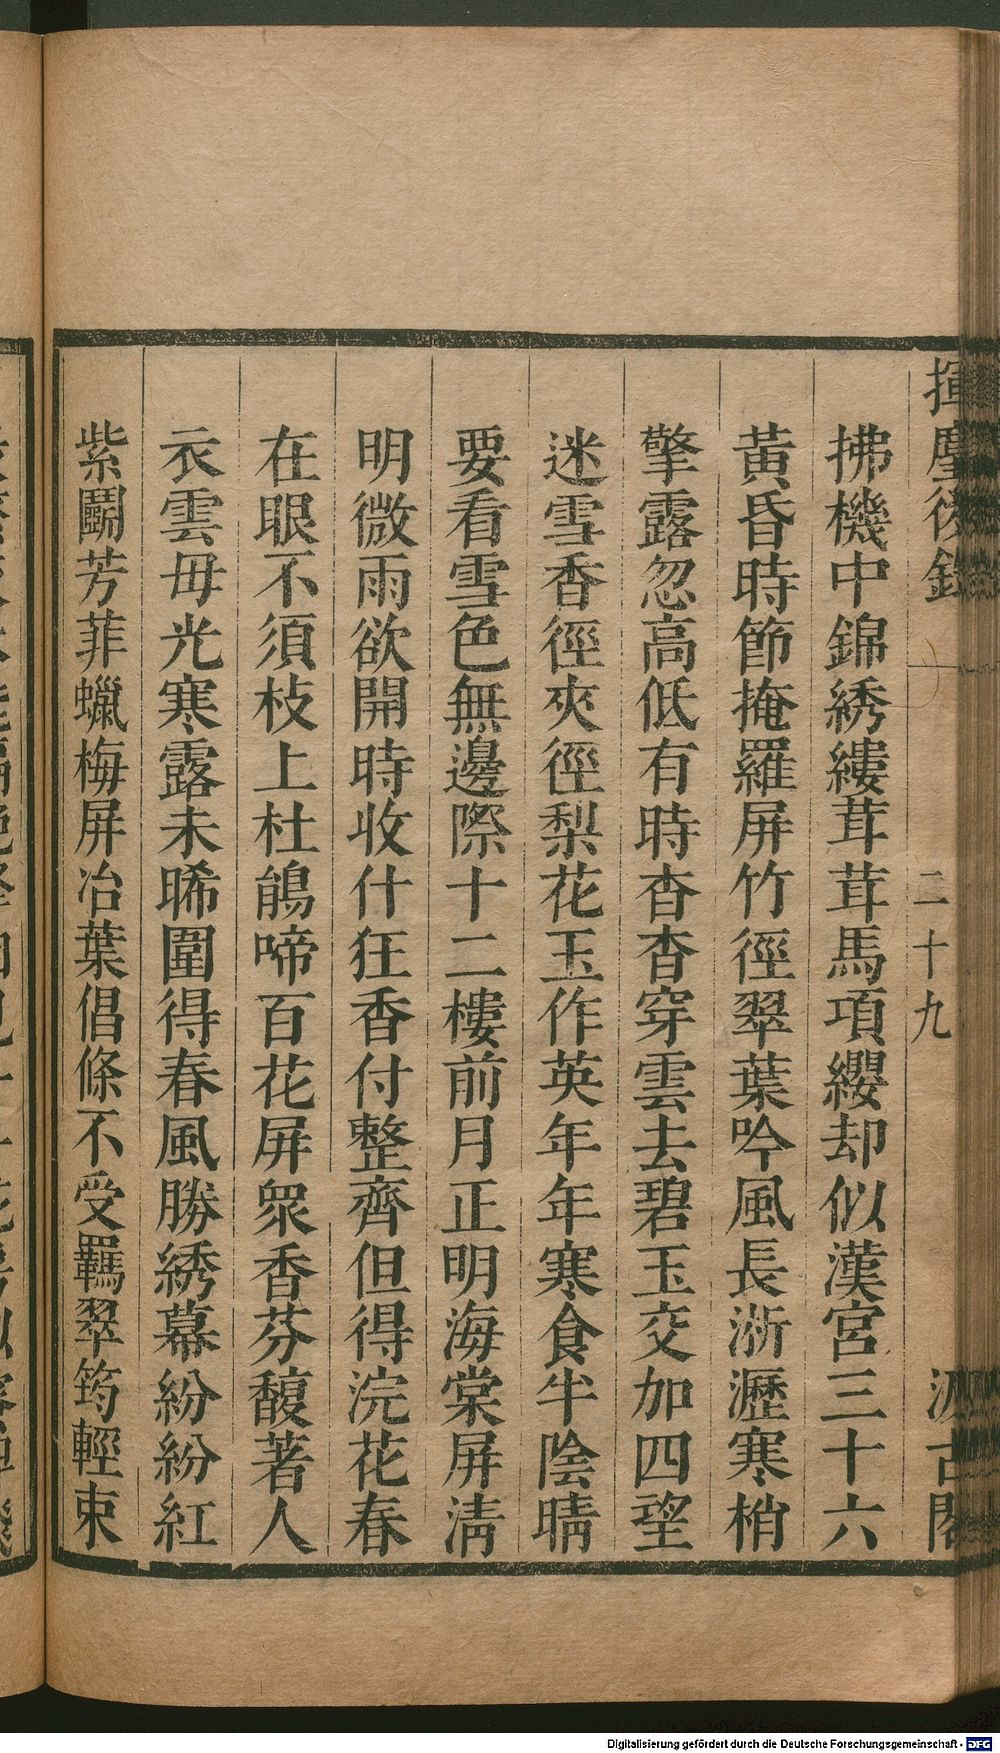 揮麈後錄
二十九
汲古閣
拂機中錦綉縷茸茸馬項纓却似漢宮三十六
黃昏時節掩羅屏竹徑翠葉吟風長淅瀝寒梢
擎露忽高低有時杳杳穿雲去碧玉交加四望
迷雪香徑夾徑梨花玉作英年年寒食半陰晴
要看雪色無邊際十二樓前月正明海棠屏淸
明微雨欲開時收什狂香付整齊但得浣花春
在眼不須枝上杜鵑啼百花屏眾香芬馥著人
衣雲毋光寒露未晞圍得春風勝綉幕紛紛紅
紫鬬芳菲蠟梅屏冶葉倡條不受羈翠筠輕束
Digitalisierung gefördert durch die Deutsche Forschungsgemeinschaft - DFG